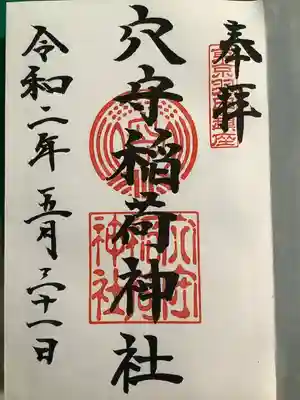 奉拝
東京羽田鎮座
穴守稲荷神社
穴守稲荷神社
令和二年五月三十一日